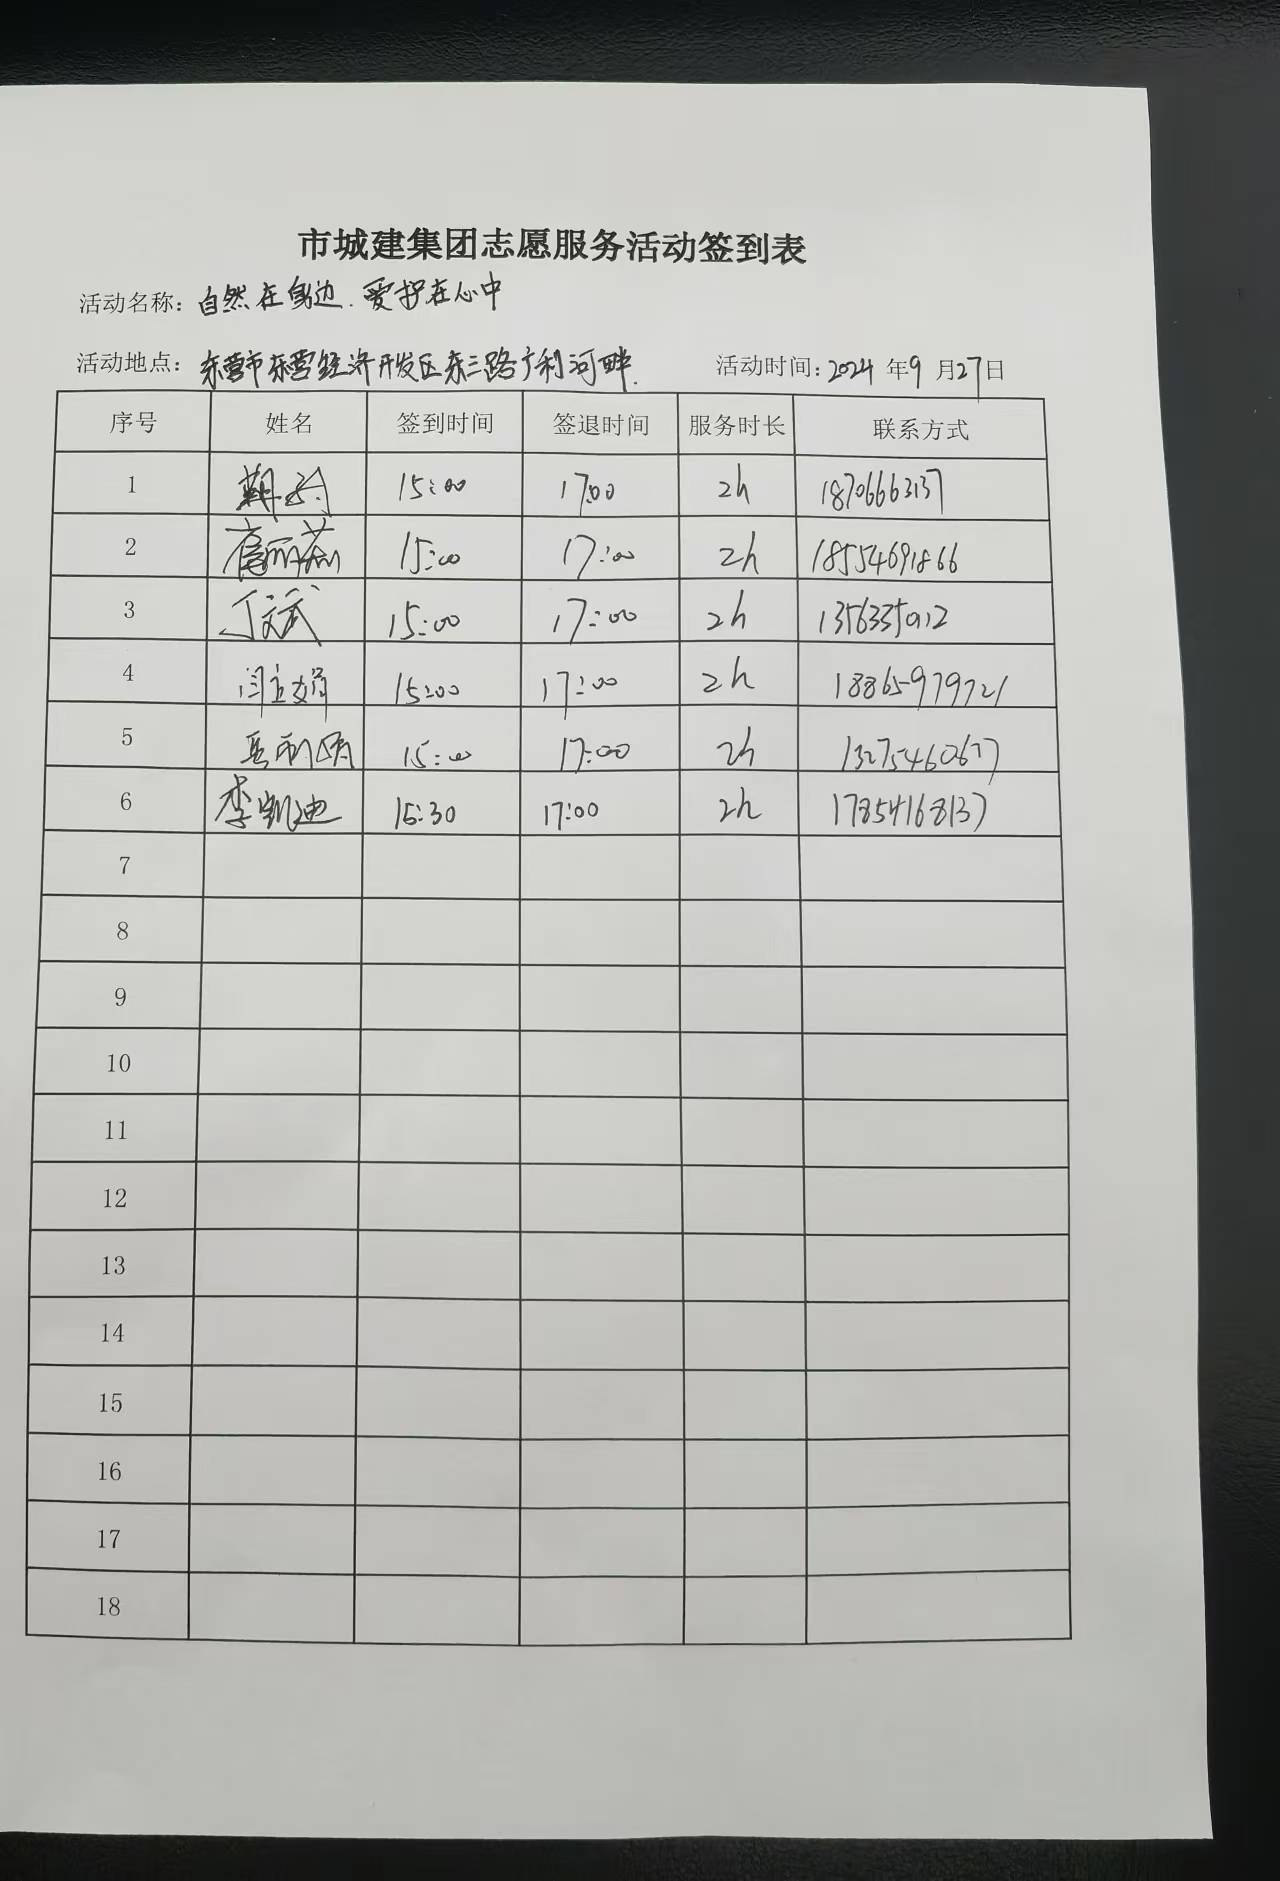 市城建集团志愿服务活动签到表
活动名称：自然在身边.爱护在心中
活动地点：东营市东营经济开发区东三路广利河畔. 活动时间：2024年9月27日
序号 姓名 签到时间 签退时间 服务时长 联系方式
1 15:00 17:00 2h 18706663137
2 15:00 17:00 2h 18554691866
3 丁文武 15:00 17:00 2h
4 15:00 17:00 2h 18865979721
5 15:00 17:00 2h 13275460677
6 李凯迪 15:30 17:00 2h 17854168137
7
8
9
10
11
12
13
14
15
16
17
18